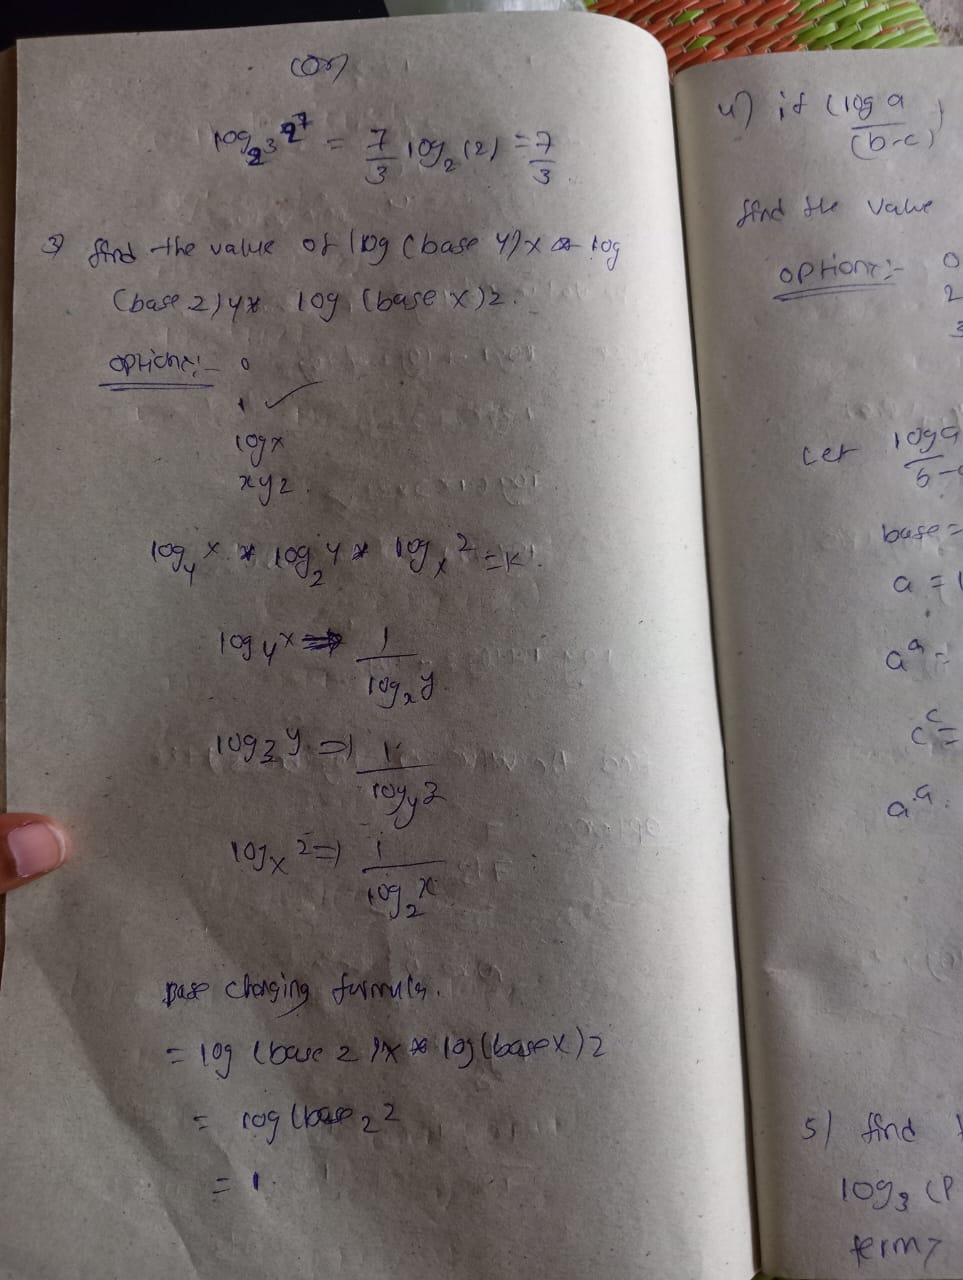 (or)
log₂³ 2⁷ = 7/3 log₂ (2) = 7/3
3) find the value of log (base y) x * log
(base z) y * log (base x) z.
options:- 0
1 ✓
log x
xyz.
log_y x * log_z y * log_x z = k
log_y x ⇒ 1/log_x y
log_z y ⇒ 1/log_y z
log_x z ⇒ 1/log_z x
base changing formula.
= log (base z) x * log (base x) z
= log (base z z
= 1.
4) if (log a / (b-c)
find the value
options:- 0
2
3
Let log a / b-
base =
a =
a^a =
c^c =
a^a.
5) find
log₃ (P
terms